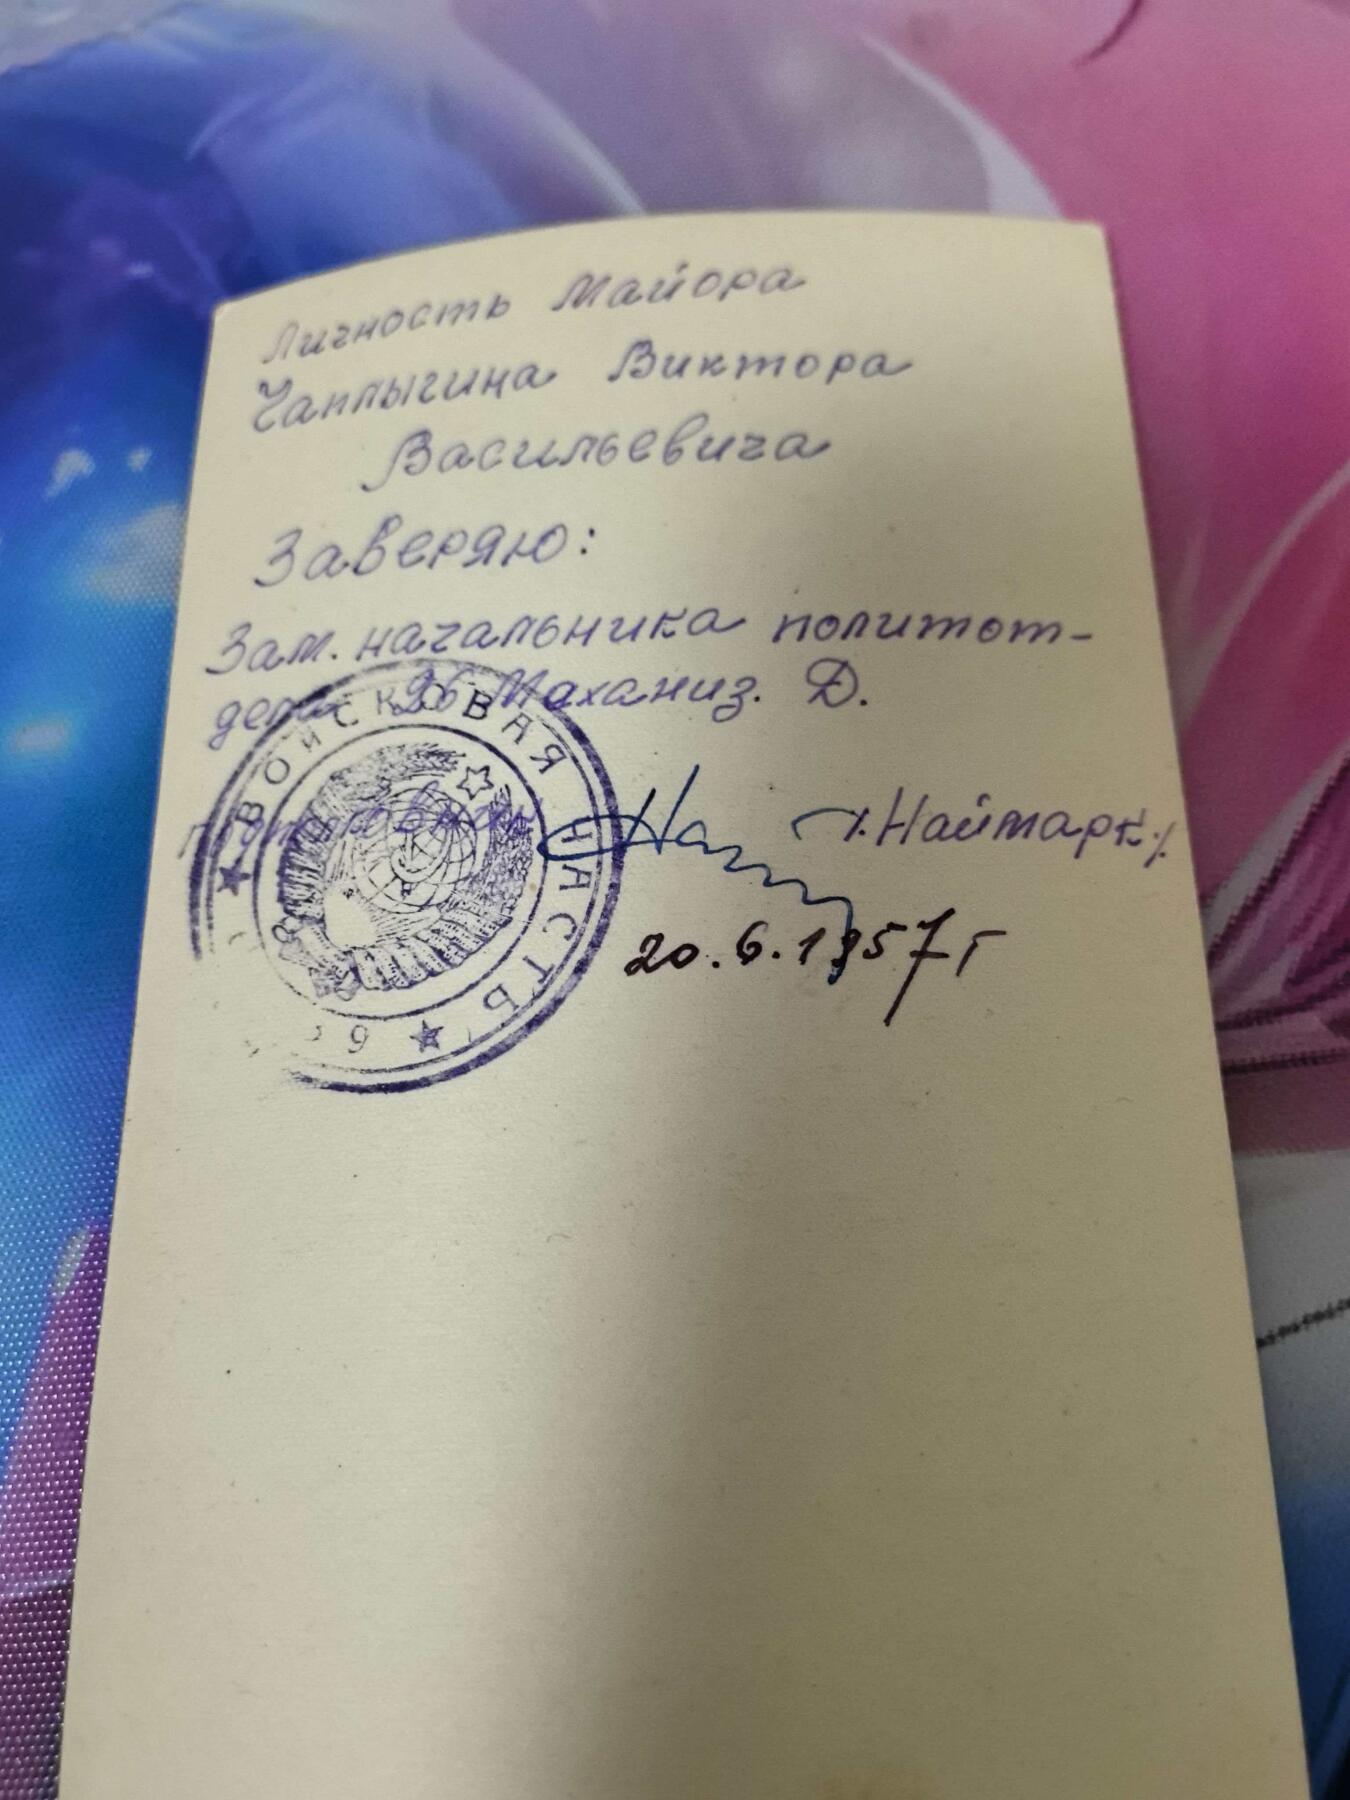 Личность Майора
Чаплыгина Виктора
Васильевича
Заверяю:
Зам. начальника политот-
дела 26 Механиз. Д.
Подполковник /.Наймарк/.
20.6.1957 г
ВОЙСКОВАЯ ЧАСТЬ